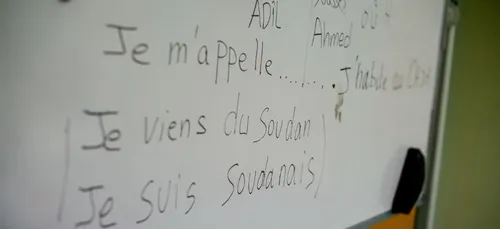 ADIL
où
Ahmed
Je m'appelle............ J'habite au
Je viens du Soudan
Je suis Soudanais